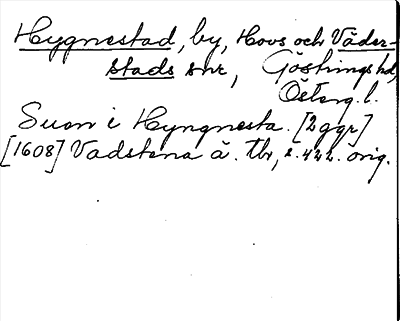 Hygnestad, by, Hovs och Väder-
stads snr, Göstrings hd,
Österg. l.
Suen i Hyngnesta. [2 ggr]
[1608] Vadstena ä. tbr, s. 422. orig.